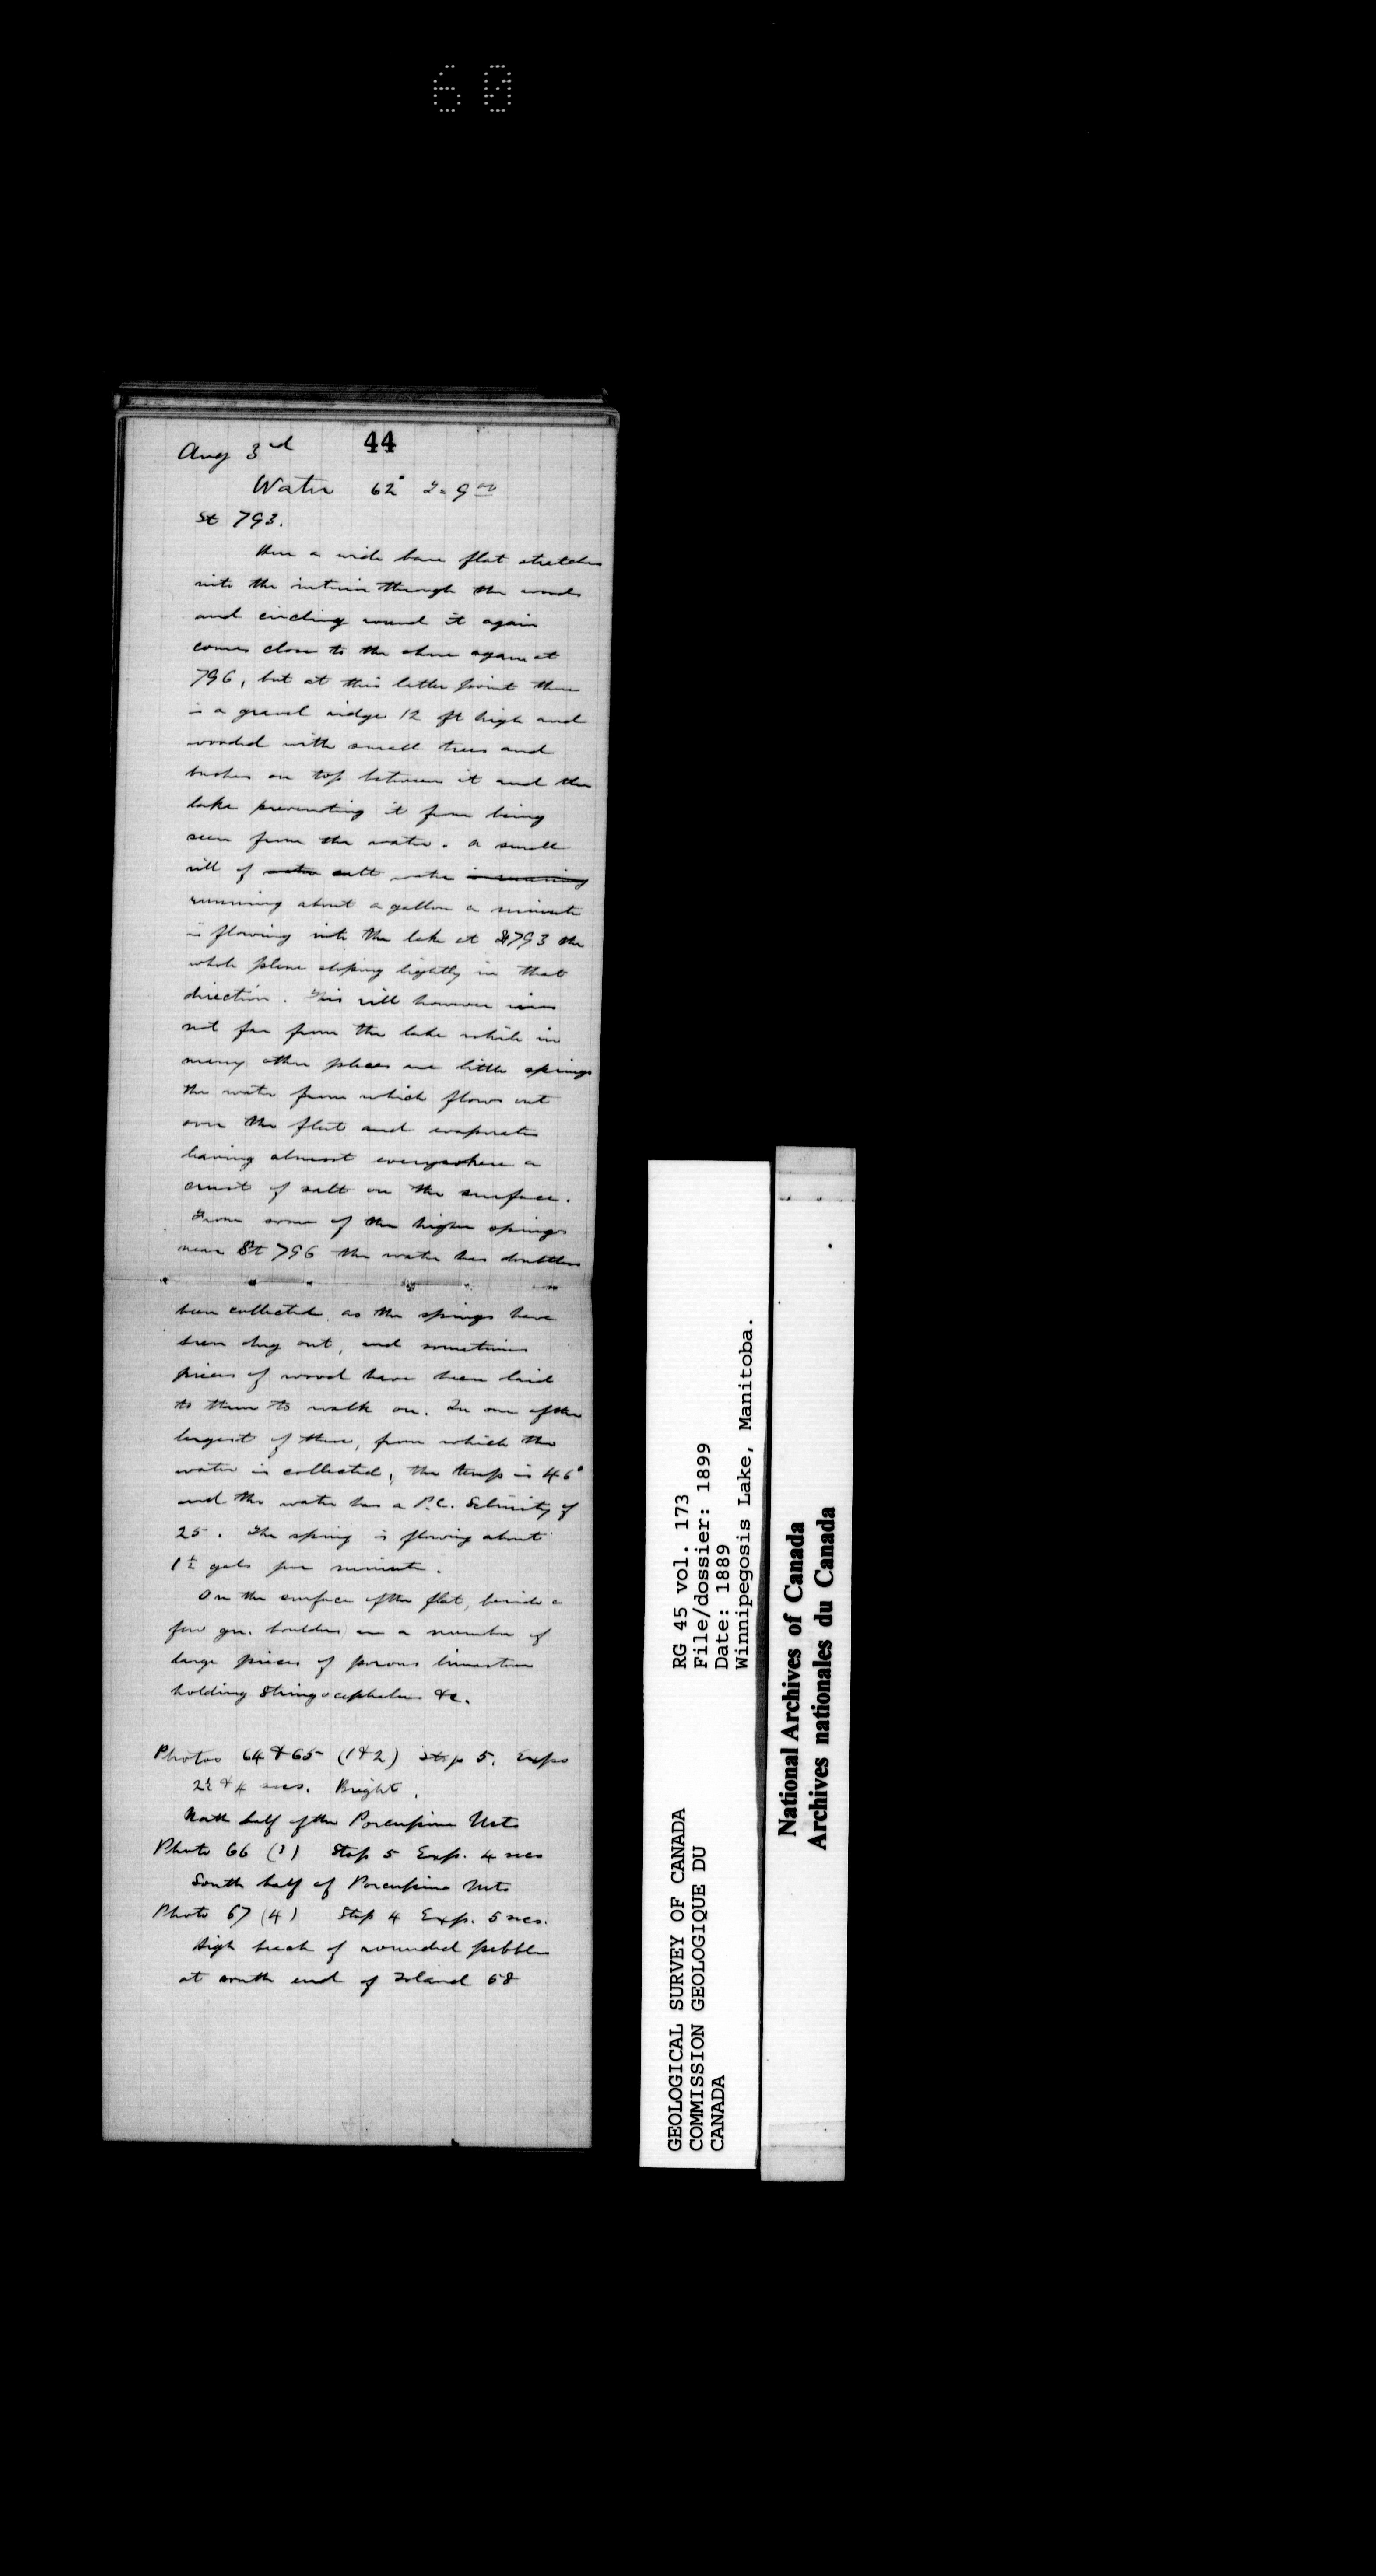 60
44
Aug 3rd
Water 62° 9 00
St 793.
Here a wide bare flat stretches
into the interior through the woods
and circling round it again
comes close to the shore again at
796, but at this latter point there
is a gravel ridge 12 ft high and
wooded with small trees and
bushes on top between it and the
lake preventing it from being
seen from the water. A small
rill of water salt water is running
running about a gallon a minute
is flowing into the lake at St 793 the
whole plane sloping lightly in that
direction. This rill however rises
not far from the lake while in
many other places are little springs
the water from which flows out
over the flat and evaporates
leaving almost everywhere a
crust of salt on the surface.
From some of the higher springs
near St 796 the water has doubtless
been collected as the springs have
been dug out, and sometimes
pieces of wood have been laid
to them to walk on. In one of the
largest of these, from which the
water is collected, the temp is 46°
and the water has a P.C. Salinity of
25. The spring is flowing about
1½ gals per minute.
On the surface of the flat, beside a
few gn. boulders are a number of
large pieces of porous limestone
holding Stringocephalus &c.
Photos 64 & 65 (1&2) Stop 5. Expo
2½ & 4 secs. Bright.
North half of the Porcupine Mts
Photo 66 (3) Stop 5 Exp. 4 secs
South half of Porcupine Mts
Photo 67 (4) Stop 4 Exp. 5 secs.
High beach of rounded pebbles
at south end of Island 68
GEOLOGICAL SURVEY OF CANADA
COMMISSION GEOLOGIQUE DU
CANADA
RG 45 vol. 173
File/dossier: 1899
Date: 1889
Winnipegosis Lake, Manitoba.
National Archives of Canada
Archives nationales du Canada